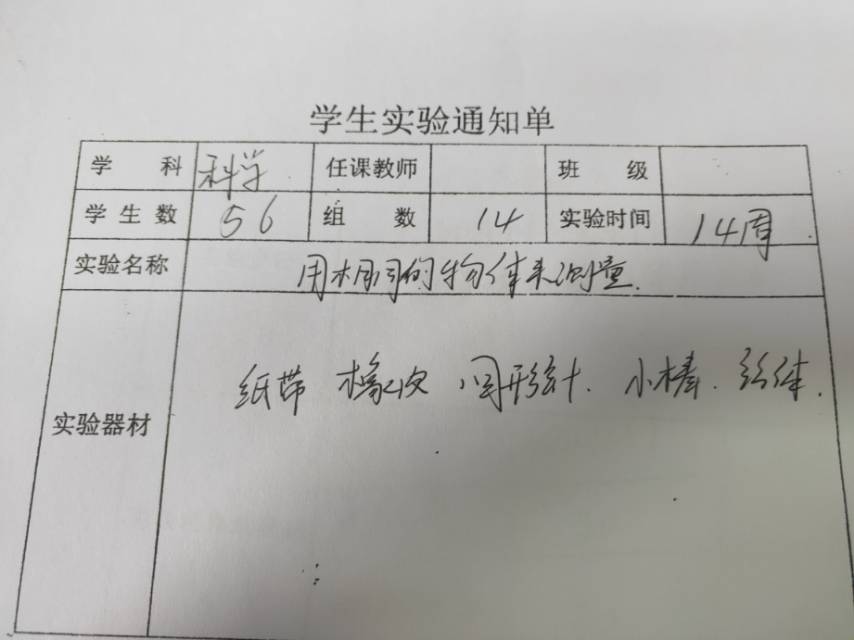 学生实验通知单
学 科 科学 任课教师 班 级
学生数 56 组 数 14 实验时间 14周
实验名称 用相同的物体来测量.
实验器材 纸带 橡皮 回形针. 小棒.